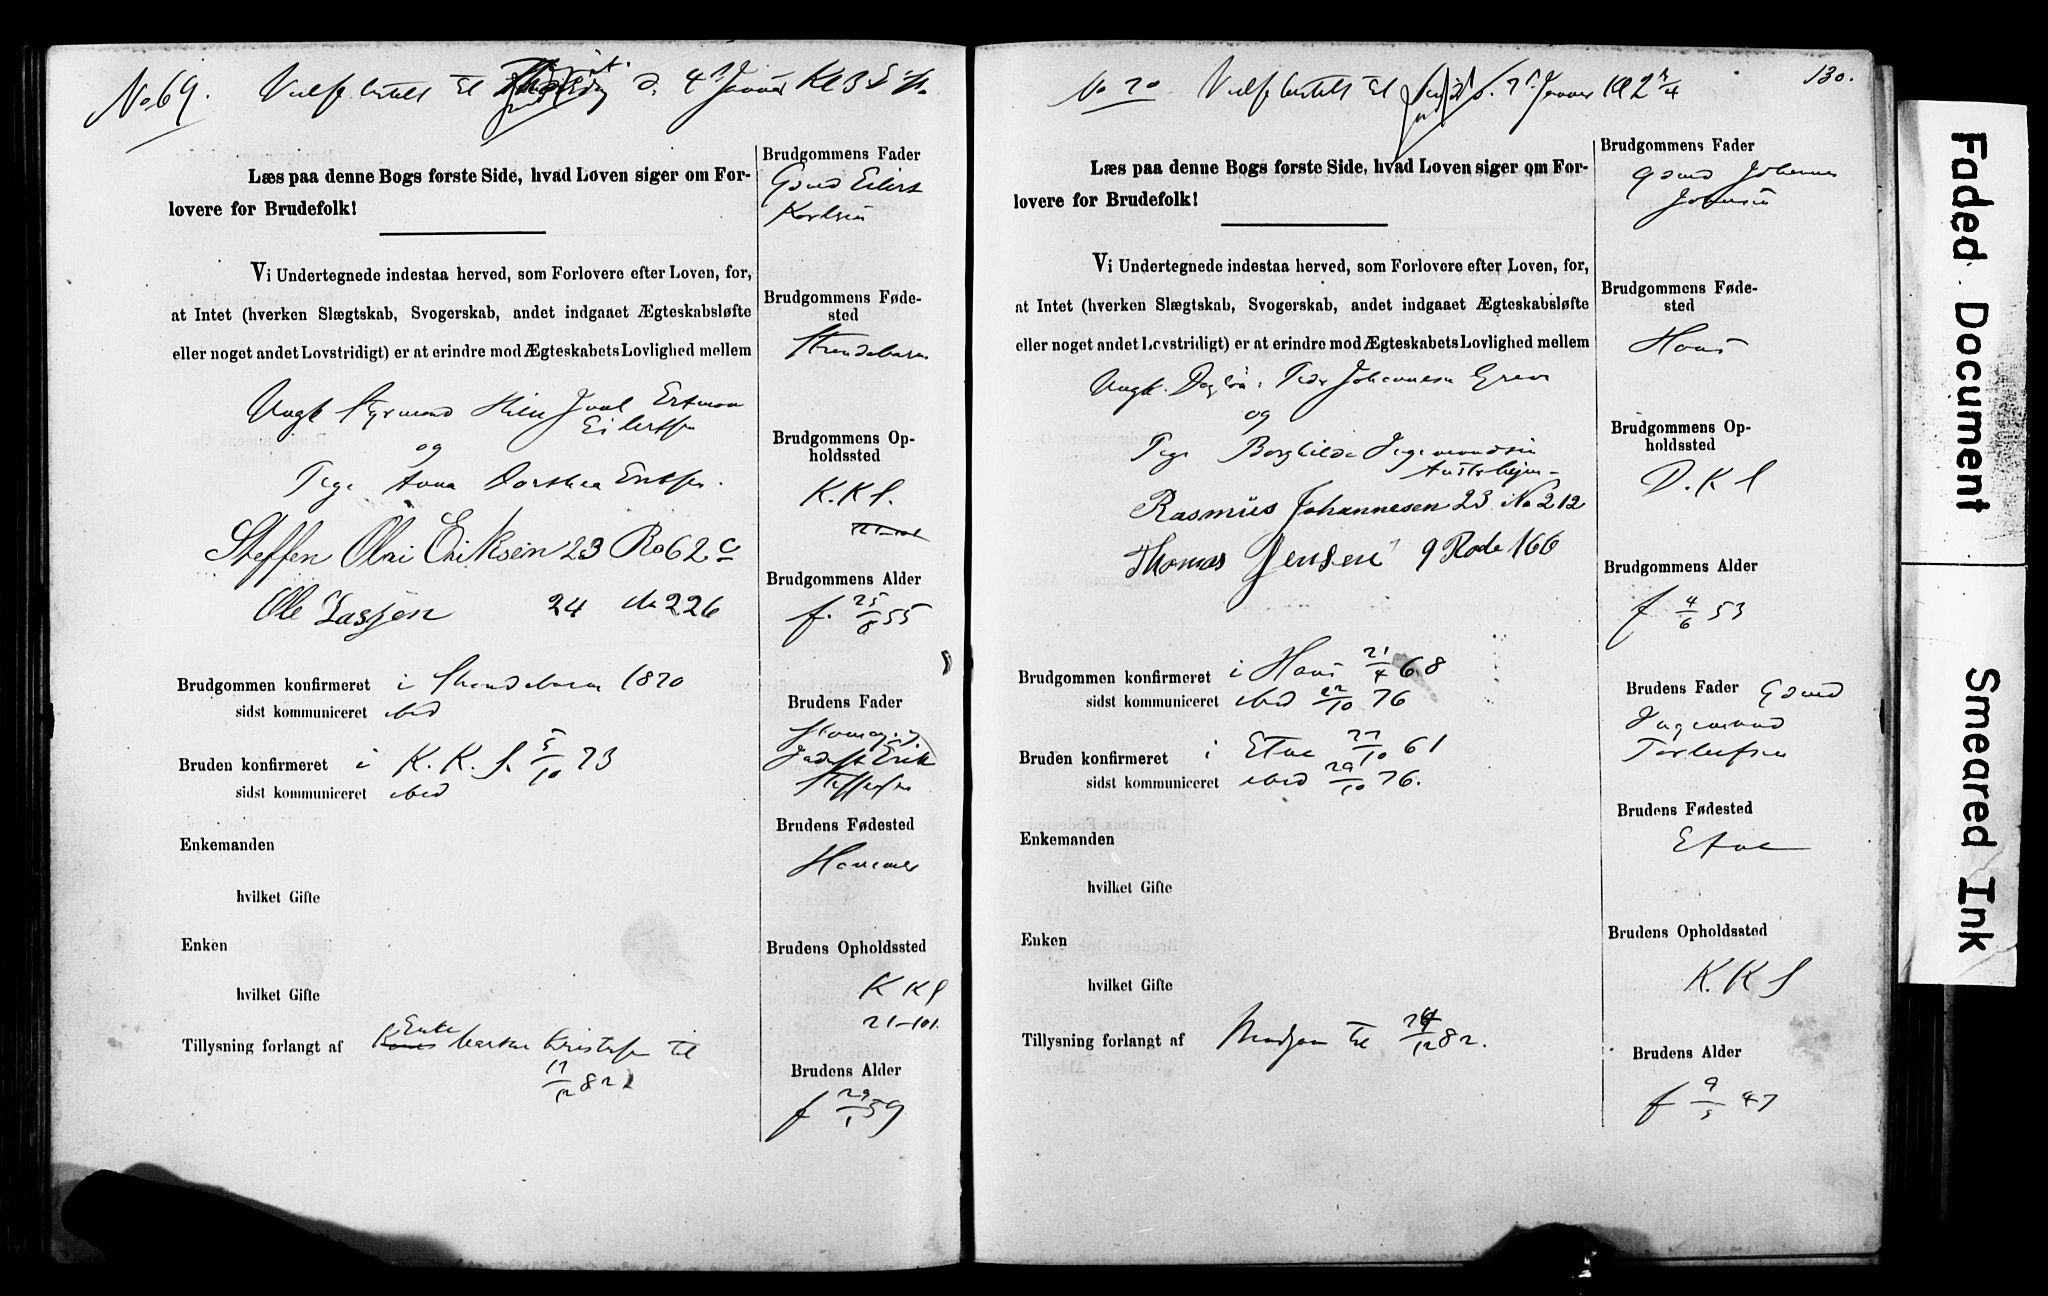 No 69. Vielse bestilt til d. 4 Januar Kl 3
Læs paa denne Bogs første Side, hvad Loven siger om For-
lovere for Brudefolk!
Vi Undertegnede indestaa herved, som Forlovere efter Loven, for,
at Intet (hverken Slægtskab, Svogerskab, andet indgaaet Ægteskabsløfte
eller noget andet Lovstridigt) er at erindre mod Ægteskabets Lovlighed mellem
Ungk Styrmand
Eilertsen
og
Pige Anna Dorthea Eriksen.
Steffen Olai Eriksen 23 Ro 62 c
Ole Lassen 24 No 226
Brudgommen konfirmeret i Strandebarm 1870
sidst kommuniceret ibid
Bruden konfirmeret i K. K. S. 5/10 73
sidst kommuniceret ibid
Enkemanden
hvilket Gifte
Enken
hvilket Gifte
Tillysning forlangt af Enke til
17/12 82
Brudgommens Fader
Gbmd Eilert
Karlsen
Brudgommens Føde-
sted
Strandebarm
Brudgommens Op-
holdssted
K. K. S.
Brudgommens Alder
f. 25/8 55
Brudens Fader
Erik
Steffensen
Brudens Fødested
Hammer
Brudens Opholdssted
K K S
21-101.
Brudens Alder
f 29/1 59
130.
No 70 Vielse bestilt til Januar Kl 2 3/4
Læs paa denne Bogs første Side, hvad Loven siger om For-
lovere for Brudefolk!
Vi Undertegnede indestaa herved, som Forlovere efter Loven, for,
at Intet (hverken Slægtskab, Svogerskab, andet indgaaet Ægteskabsløfte
eller noget andet Lovstridigt) er at erindre mod Ægteskabets Lovlighed mellem
Ungk. Peder Johannesen
og
Pige Borghilde Ingemundsen
Rasmus Johannesen 23 No 212
Thomas Jensen 9 Rode 166
Brudgommen konfirmeret i Haus 21/4 68
sidst kommuniceret ibid 22/10 76
Bruden konfirmeret i Etne 27/10 61
sidst kommuniceret ibid 29/10 76.
Enkemanden
hvilket Gifte
Enken
hvilket Gifte
Tillysning forlangt af til 24/12 82.
Brudgommens Fader
Gbmd Johannes
Johnsen
Brudgommens Føde-
sted
Haus
Brudgommens Op-
holdssted
D. K S
Brudgommens Alder
f 4/6 53
Brudens Fader Gbmd
Ingemund
Torleifsen
Brudens Fødested
Etne
Brudens Opholdssted
K. K S
Brudens Alder
f 9/5 47
Faded Document
Smeared Ink